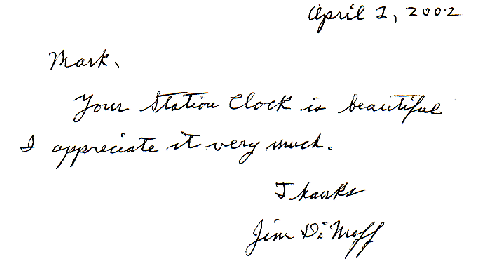 April 2, 2002
Mark,
Your Station Clock is beautiful
I appreciate it very much.
Thanks
Jim Di Neff